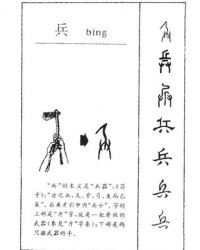 兵 bīng
"兵"的本义是"兵器"。《荀
子》:"古之兵,戈、矛、弓、矢而已
矣"。后来才引申为"兵士"。字的
上部是"斤"字,就是一把柄的
武器(参见"斤"字条);下部是两
只握武器的手。
兵
兵
兵
兵